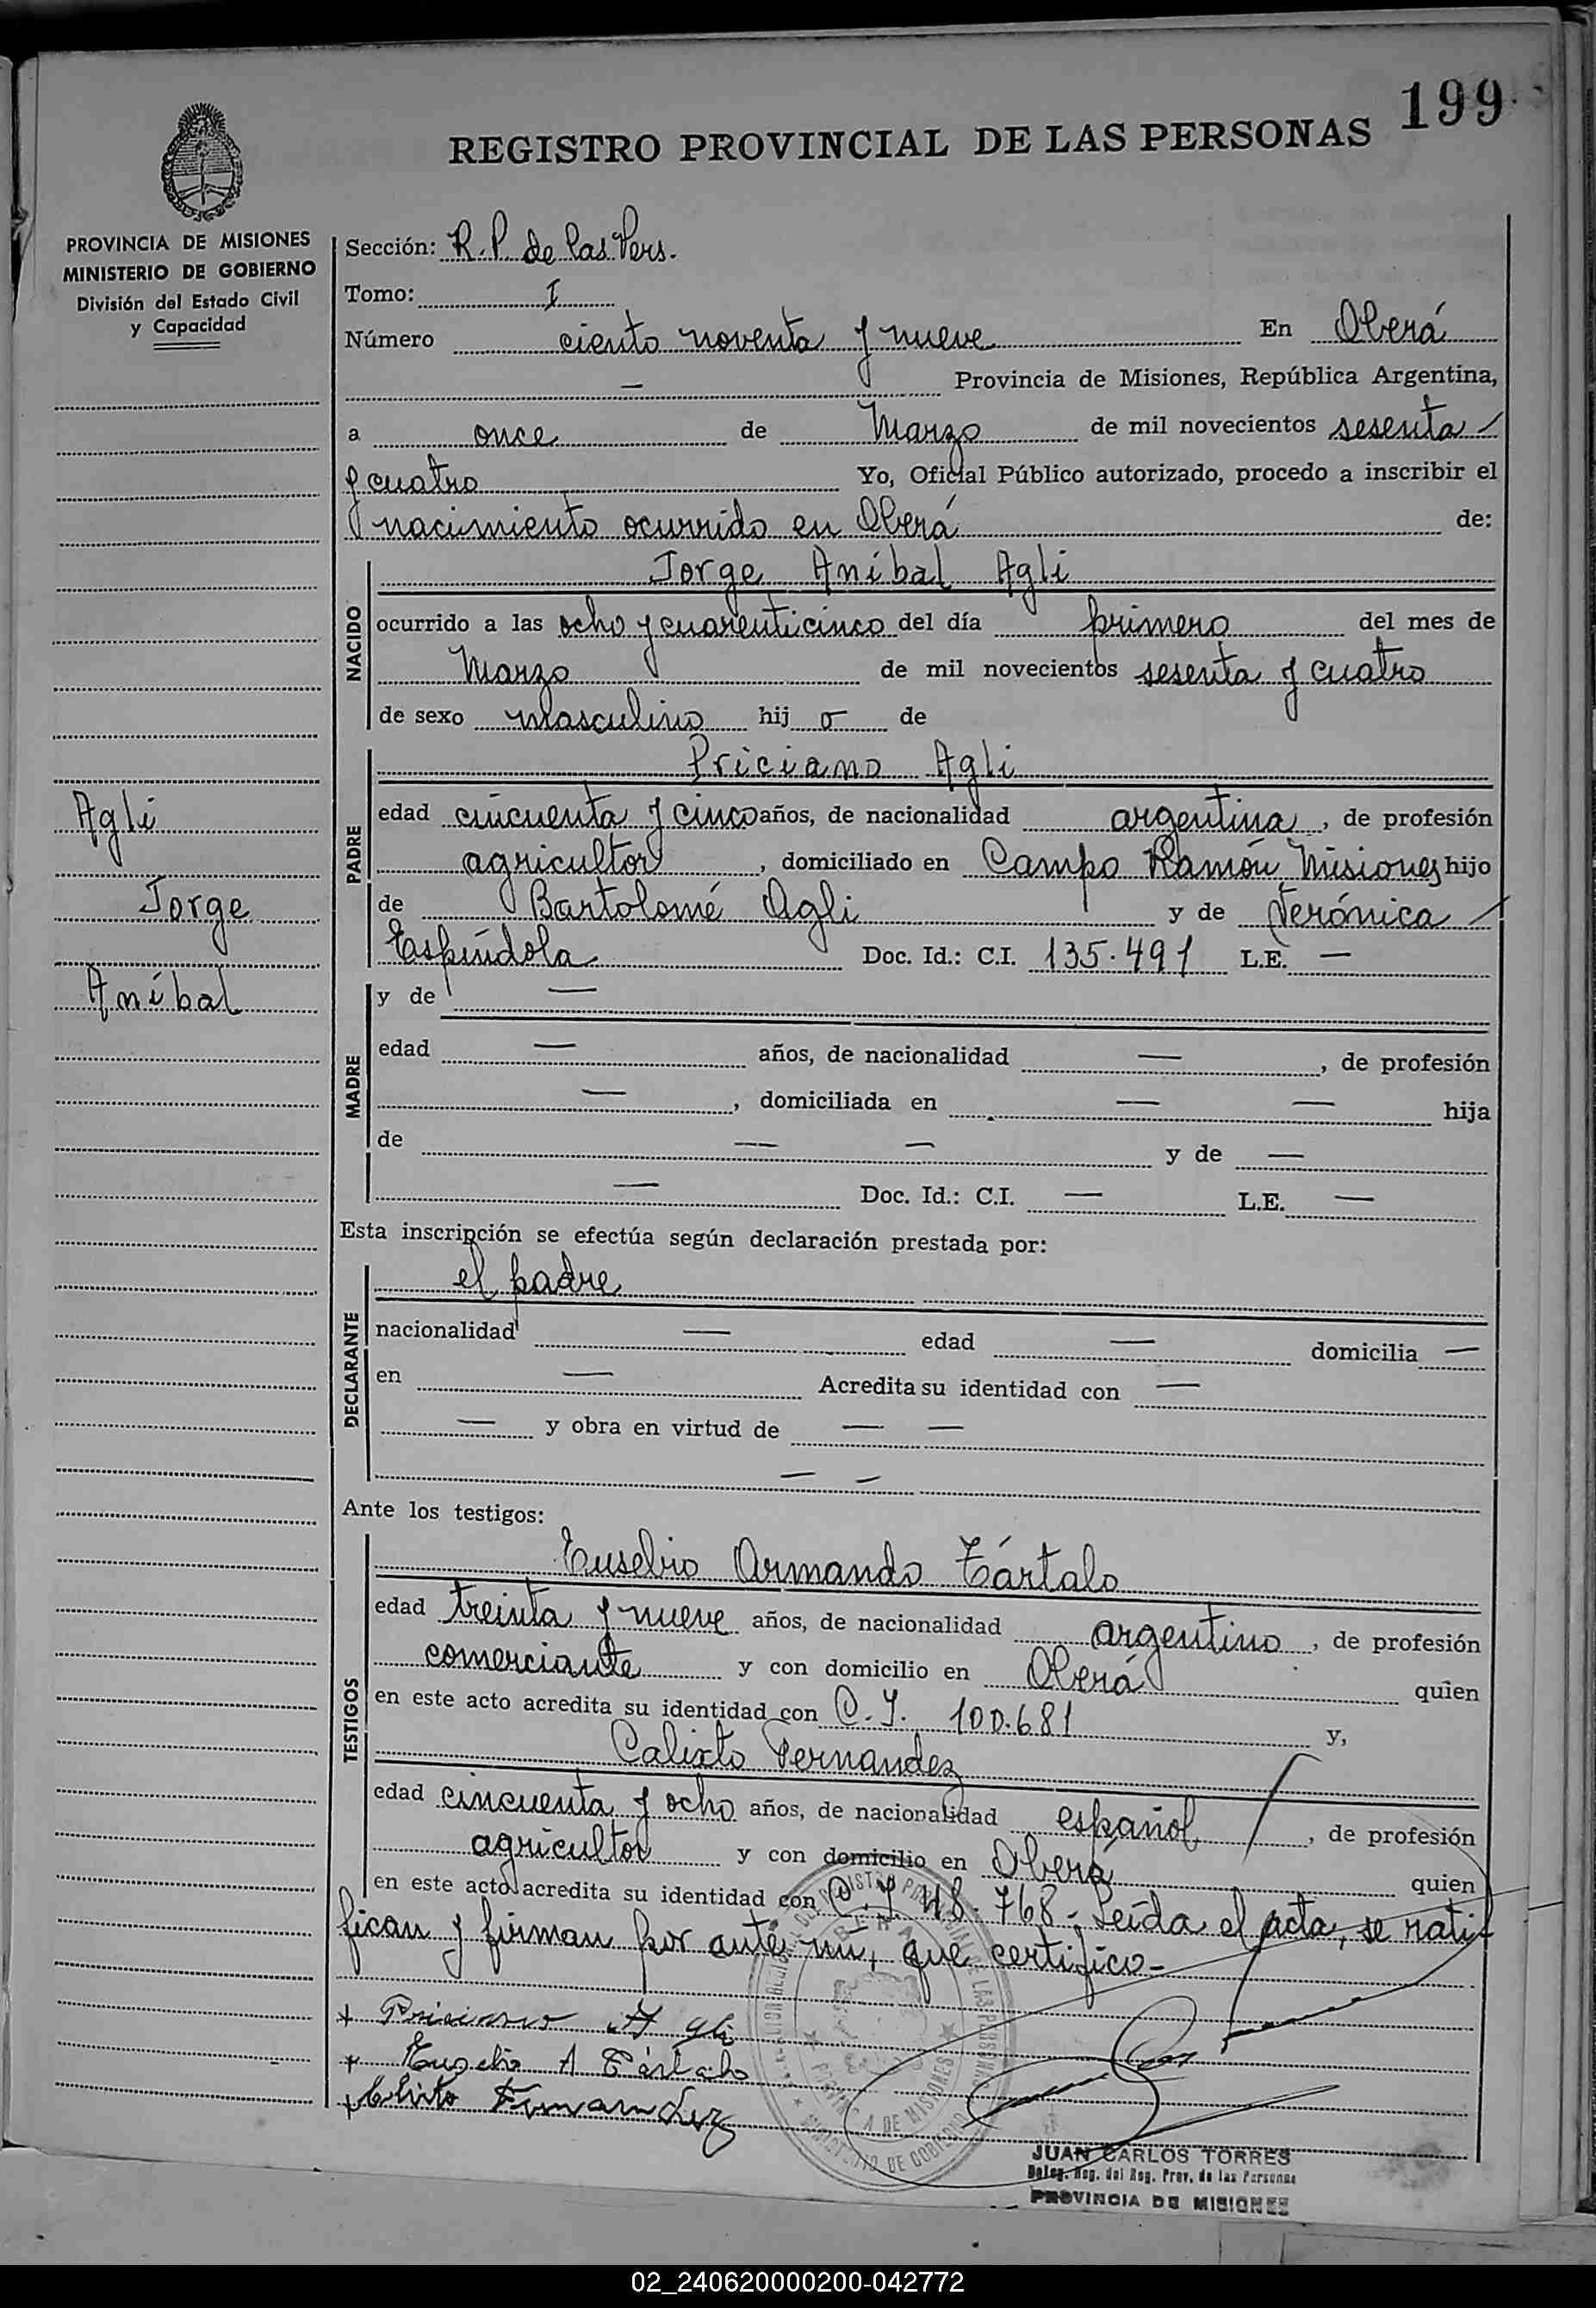 199
REGISTRO PROVINCIAL DE LAS PERSONAS
PROVINCIA DE MISIONES
MINISTERIO DE GOBIERNO
División del Estado Civil
y Capacidad
Agli
Jorge
Aníbal
Sección: R. P. de las Pers.
Tomo: I
Número ciento noventa y nueve En Oberá
— Provincia de Misiones, República Argentina,
a once de Marzo de mil novecientos sesenta
y cuatro Yo, Oficial Público autorizado, procedo a inscribir el
nacimiento ocurrido en Oberá de:
NACIDO
Jorge Aníbal Agli
ocurrido a las ocho y cuarenticinco del día primero del mes de
Marzo de mil novecientos sesenta y cuatro
de sexo masculino hij o de
PADRE
Priciano Agli
edad cincuenta y cinco años, de nacionalidad argentina, de profesión
agricultor, domiciliado en Campo Ramón Misiones hijo
de Bartolomé Agli y de Verónica
Espíndola Doc. Id.: C.I. 135.491 L.E. —
MADRE
y de —
edad — años, de nacionalidad —, de profesión
—, domiciliada en — — hija
de — — y de —
— Doc. Id.: C.I. — L.E. —
Esta inscripción se efectúa según declaración prestada por:
DECLARANTE
el padre
nacionalidad — edad — domicilia —
en — Acredita su identidad con —
— y obra en virtud de — —
— —
Ante los testigos:
TESTIGOS
Eusebio Armando Tártalo
edad treinta y nueve años, de nacionalidad argentino, de profesión
comerciante y con domicilio en Oberá quien
en este acto acredita su identidad con C.I. 100.681 y,
Calixto Fernandez
edad cincuenta y ocho años, de nacionalidad español, de profesión
agricultor y con domicilio en Oberá quien
en este acto acredita su identidad con C.I 48.768.- Leída el acta, se rati
fican y firman por ante mi, que certifico-
Priciano Agli
Eusebio A Tártalo
Fernandez
PROVINCIA DE MISIONES
MINISTERIO DE GOBIERNO
JUAN CARLOS TORRES
Deleg. Reg. del Reg. Prov. de las Personas
PROVINCIA DE MISIONES
02_240620000200-042772